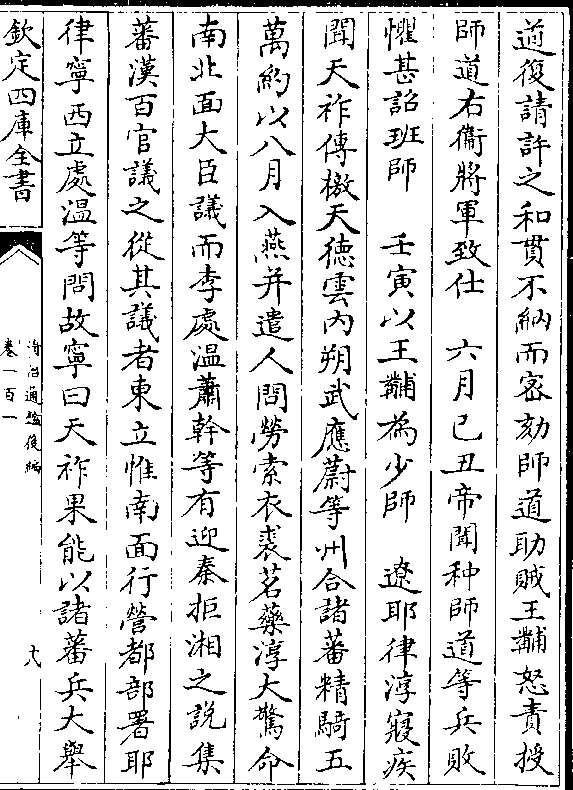 道復請許之和貫不納而密劾師道助賊王黼怒責授
師道右衞將軍致仕　六月己丑帝聞种師道等兵敗
懼甚詔班師　壬寅以王黼為少師　遼耶律淳寢疾
聞天祚傳檄天德雲内朔武應蔚等州合諸蕃精騎五
萬約以八月入燕并遣人問勞索衣裘茗藥淳大驚命
南北面大臣議而李處溫蕭幹等有迎秦拒湘之說集
蕃漢百官議之從其議者東立惟南面行營都部署耶
律寧西立處溫等問故寧曰天祚果能以諸蕃兵大舉
欽定四庫全書
資治通鑑後編
卷一百一
十八